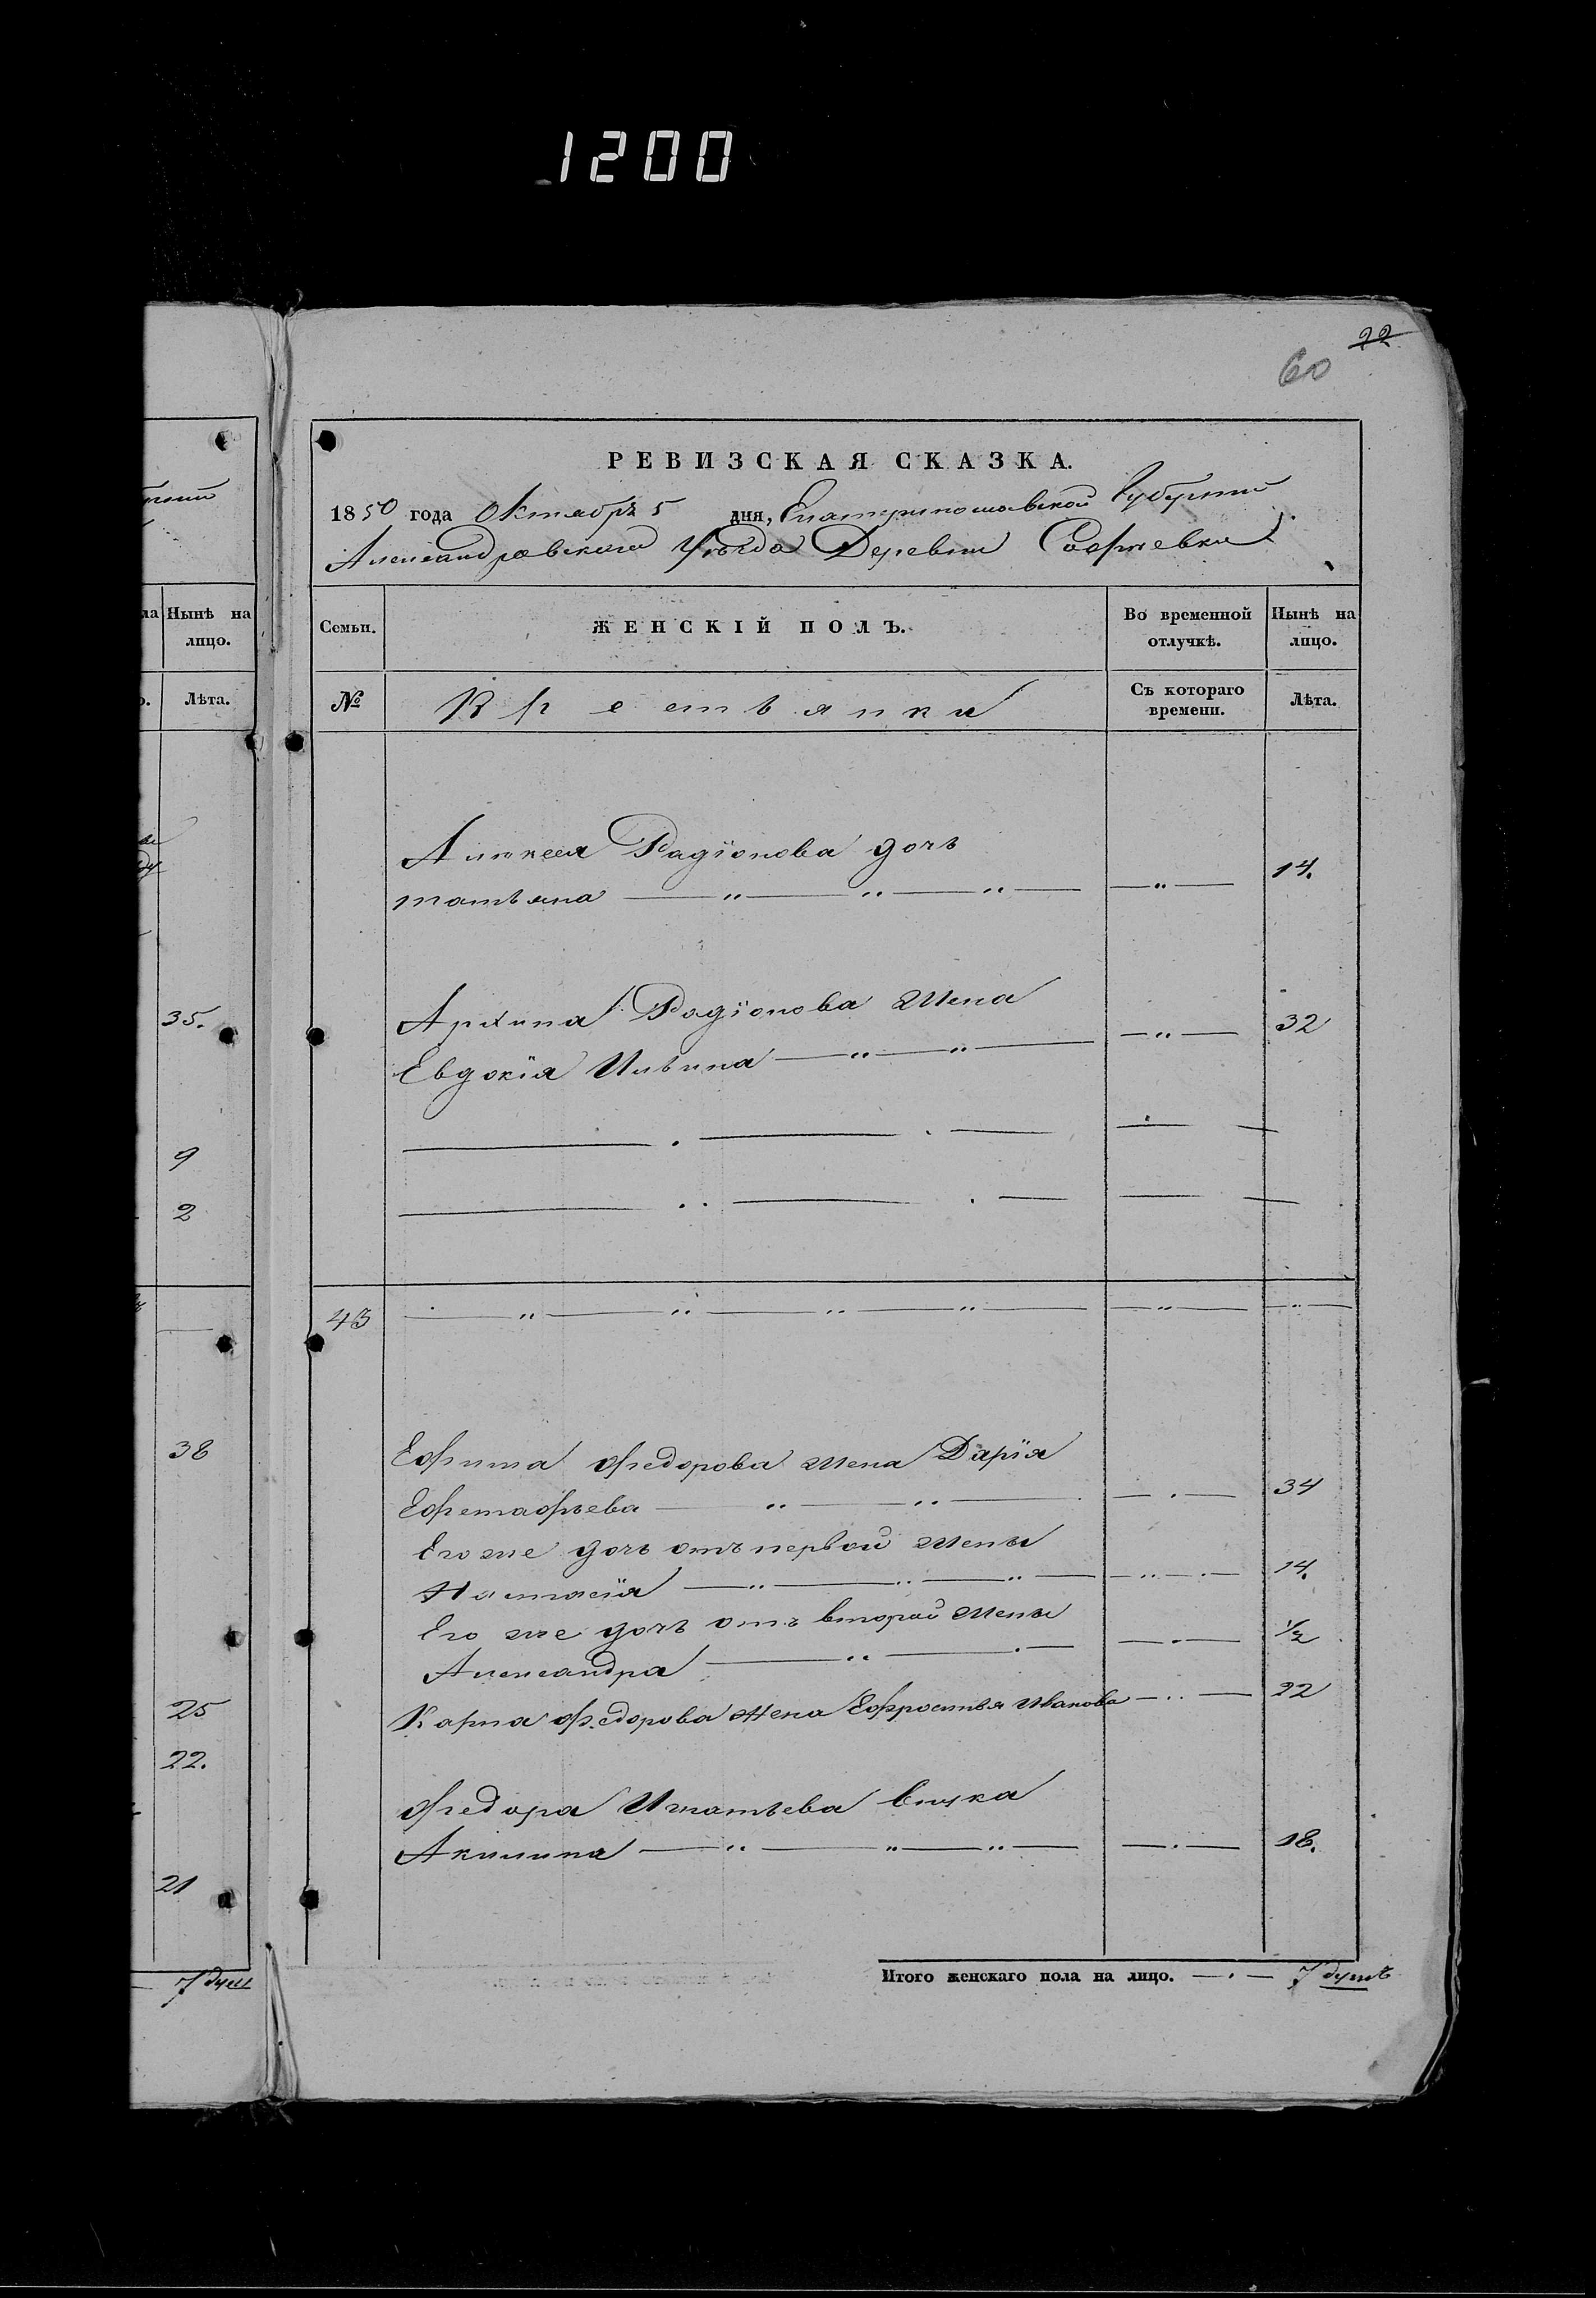 1200
22
60
РЕВИЗСКАЯ СКАЗКА.
1850 года Октябрь 5 дня, Екатеринославской Губерніи
Александровскаго Уѣзда Деревни Софіевки
Нынѣ на
лицо.
Лѣта.
Семьи.
ЖЕНСКІЙ ПОЛЪ.
Во временной
отлучкѣ.
Нынѣ на
лицо.
№
Крестьянки
Съ котораго
времени.
Лѣта.
Алексея Радіонова дочь
татьяна — „ — „ — „ — — „ — 14.
35.
Архипа Радіонова жена
Евдокія Ильина — „ — „ — — „ — 32
9
2
43
38
Ефима Федорова жена Дарія
Ефстафьева — „ — „ — — . — 34
Его же дочь отъ первой жены
Настасія — „ — „ — „ — 14.
Его же дочь отъ второй жены
Александра — „ — . — — . — 1/2
25
Карпа Федорова жена Ефросинья Иванова — „ — 22
22.
Федора Игнатьева внука
Акилина — „ — „ — „ — — . — 18.
21
7 душ
Итого женскаго пола на лицо. — . — 7 душъ